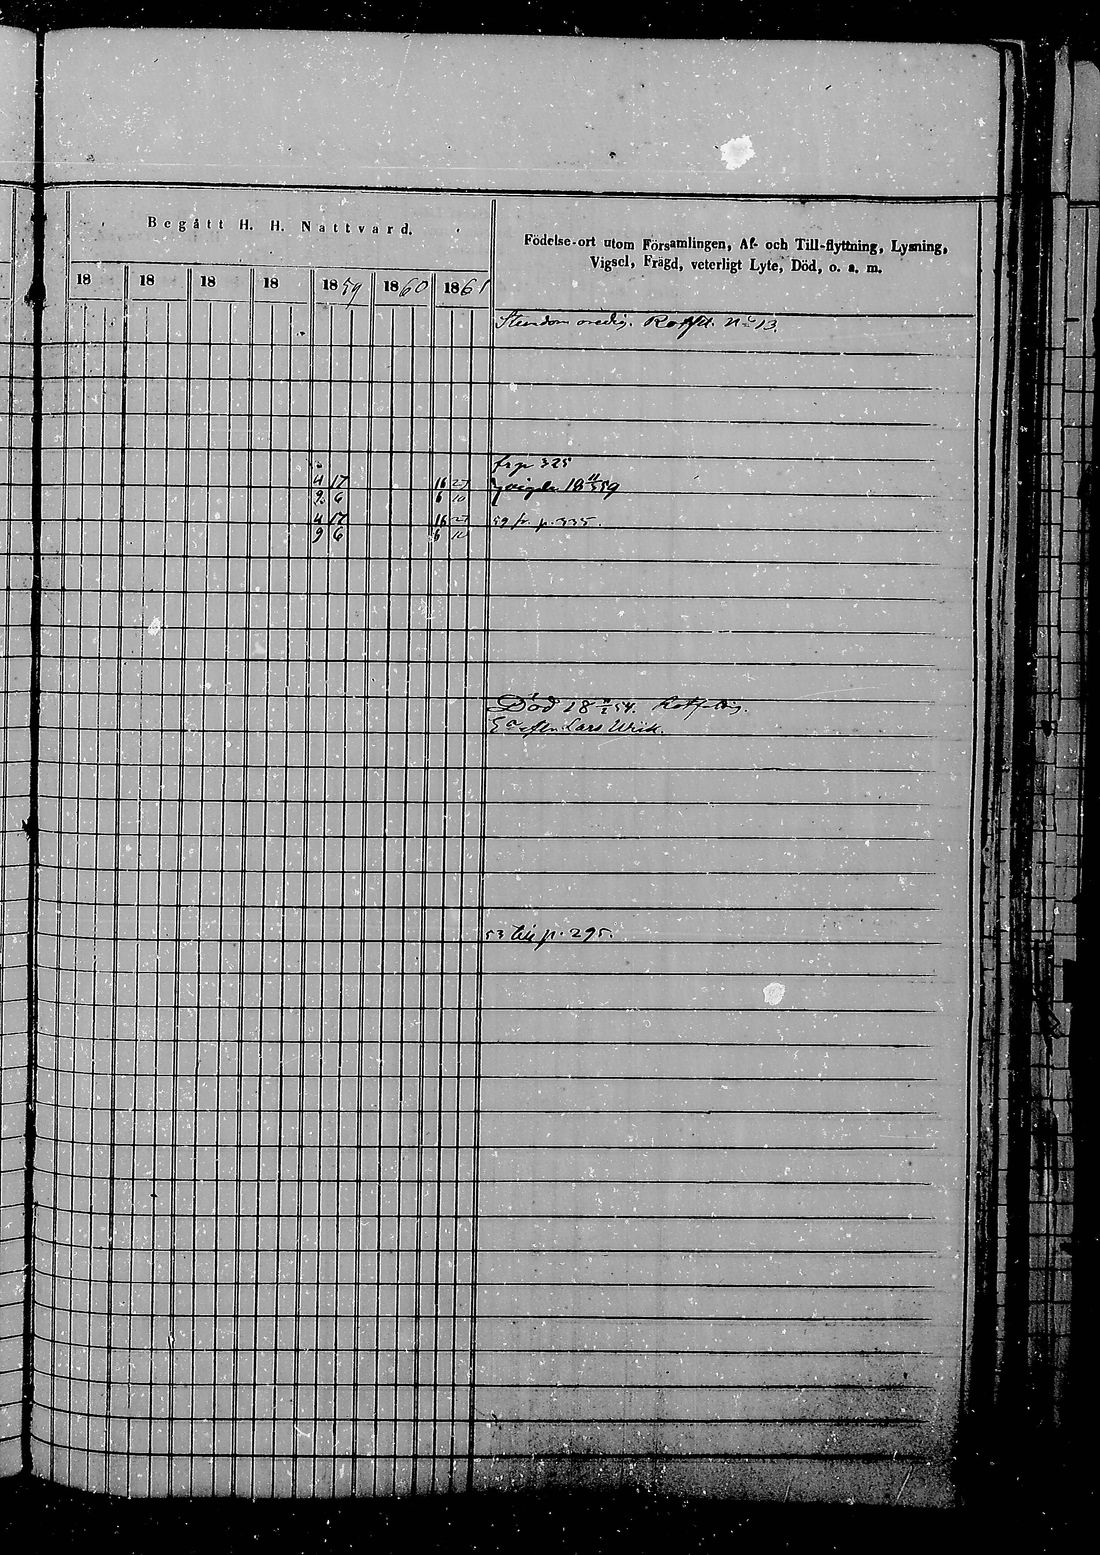 Begått H. H. Nattvard.
Födelse-ort utom Församlingen, Af- och Till-flyttning, Lysning,
Vigsel, Frägd, veterligt Lyte, Död, o. s. m.
18 18 18 18 1859 1860 1861
No 13.
fr p 325
4 17 16 27
9 6 6 10 59
4 17 16 27 59 fr. p. 335.
9 6 6 10
Död 18 54.
Lars
53 till p. 295.